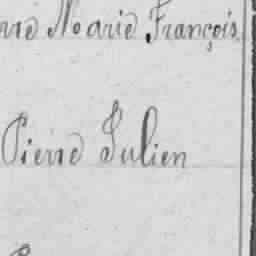 Marie François
Pierre Julien